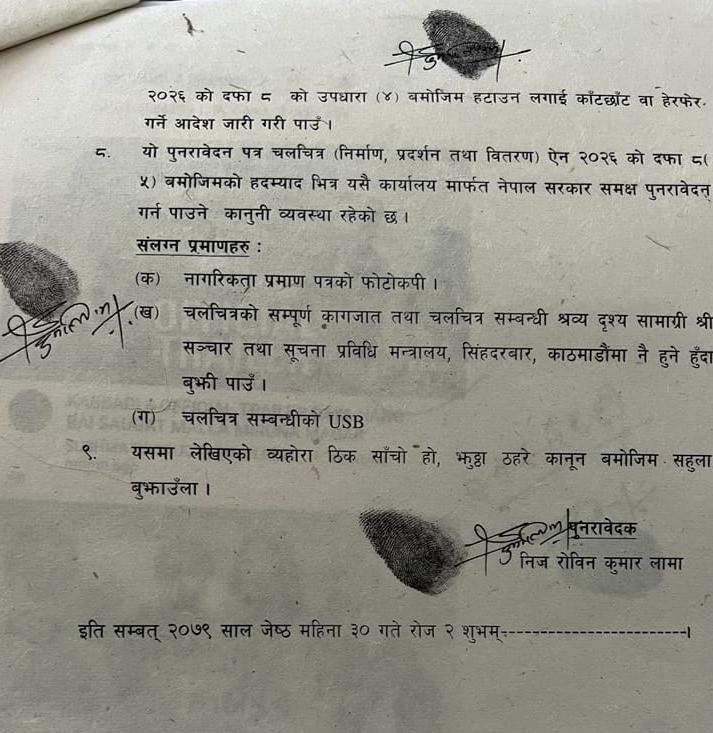 २०२६ को दफा ८ को उपधारा (४) बमोजिम हटाउन लगाई काँटछाँट वा हेरफेर
गर्ने आदेश जारी गरी पाउँ ।
८. यो पुनरावेदन पत्र चलचित्र (निर्माण, प्रदर्शन तथा वितरण) ऐन २०२६ को दफा ८(
५) बमोजिमको हदम्याद भित्र यसै कार्यालय मार्फत नेपाल सरकार समक्ष पुनरावेदन्
गर्न पाउने कानुनी व्यवस्था रहेको छ ।
संलग्न प्रमाणहरु :
(क) नागरिकता प्रमाण पत्रको फोटोकपी ।
(ख) चलचित्रको सम्पूर्ण कागजात तथा चलचित्र सम्बन्धी श्रव्य दृश्य सामाग्री श्री
सञ्चार तथा सूचना प्रविधि मन्त्रालय, सिंहदरबार, काठमाडौंमा नै हुने हुँदा
बुझी पाउँ ।
(ग) चलचित्र सम्बन्धीको USB
९. यसमा लेखिएको व्यहोरा ठिक साँचो हो, झुठ्ठा ठहरे कानून बमोजिम सहुला
बुझाउँला ।
पुनरावेदक
निज रोविन कुमार लामा
इति सम्बत् २०७९ साल जेष्ठ महिना ३० गते रोज २ शुभम्:------------------------।